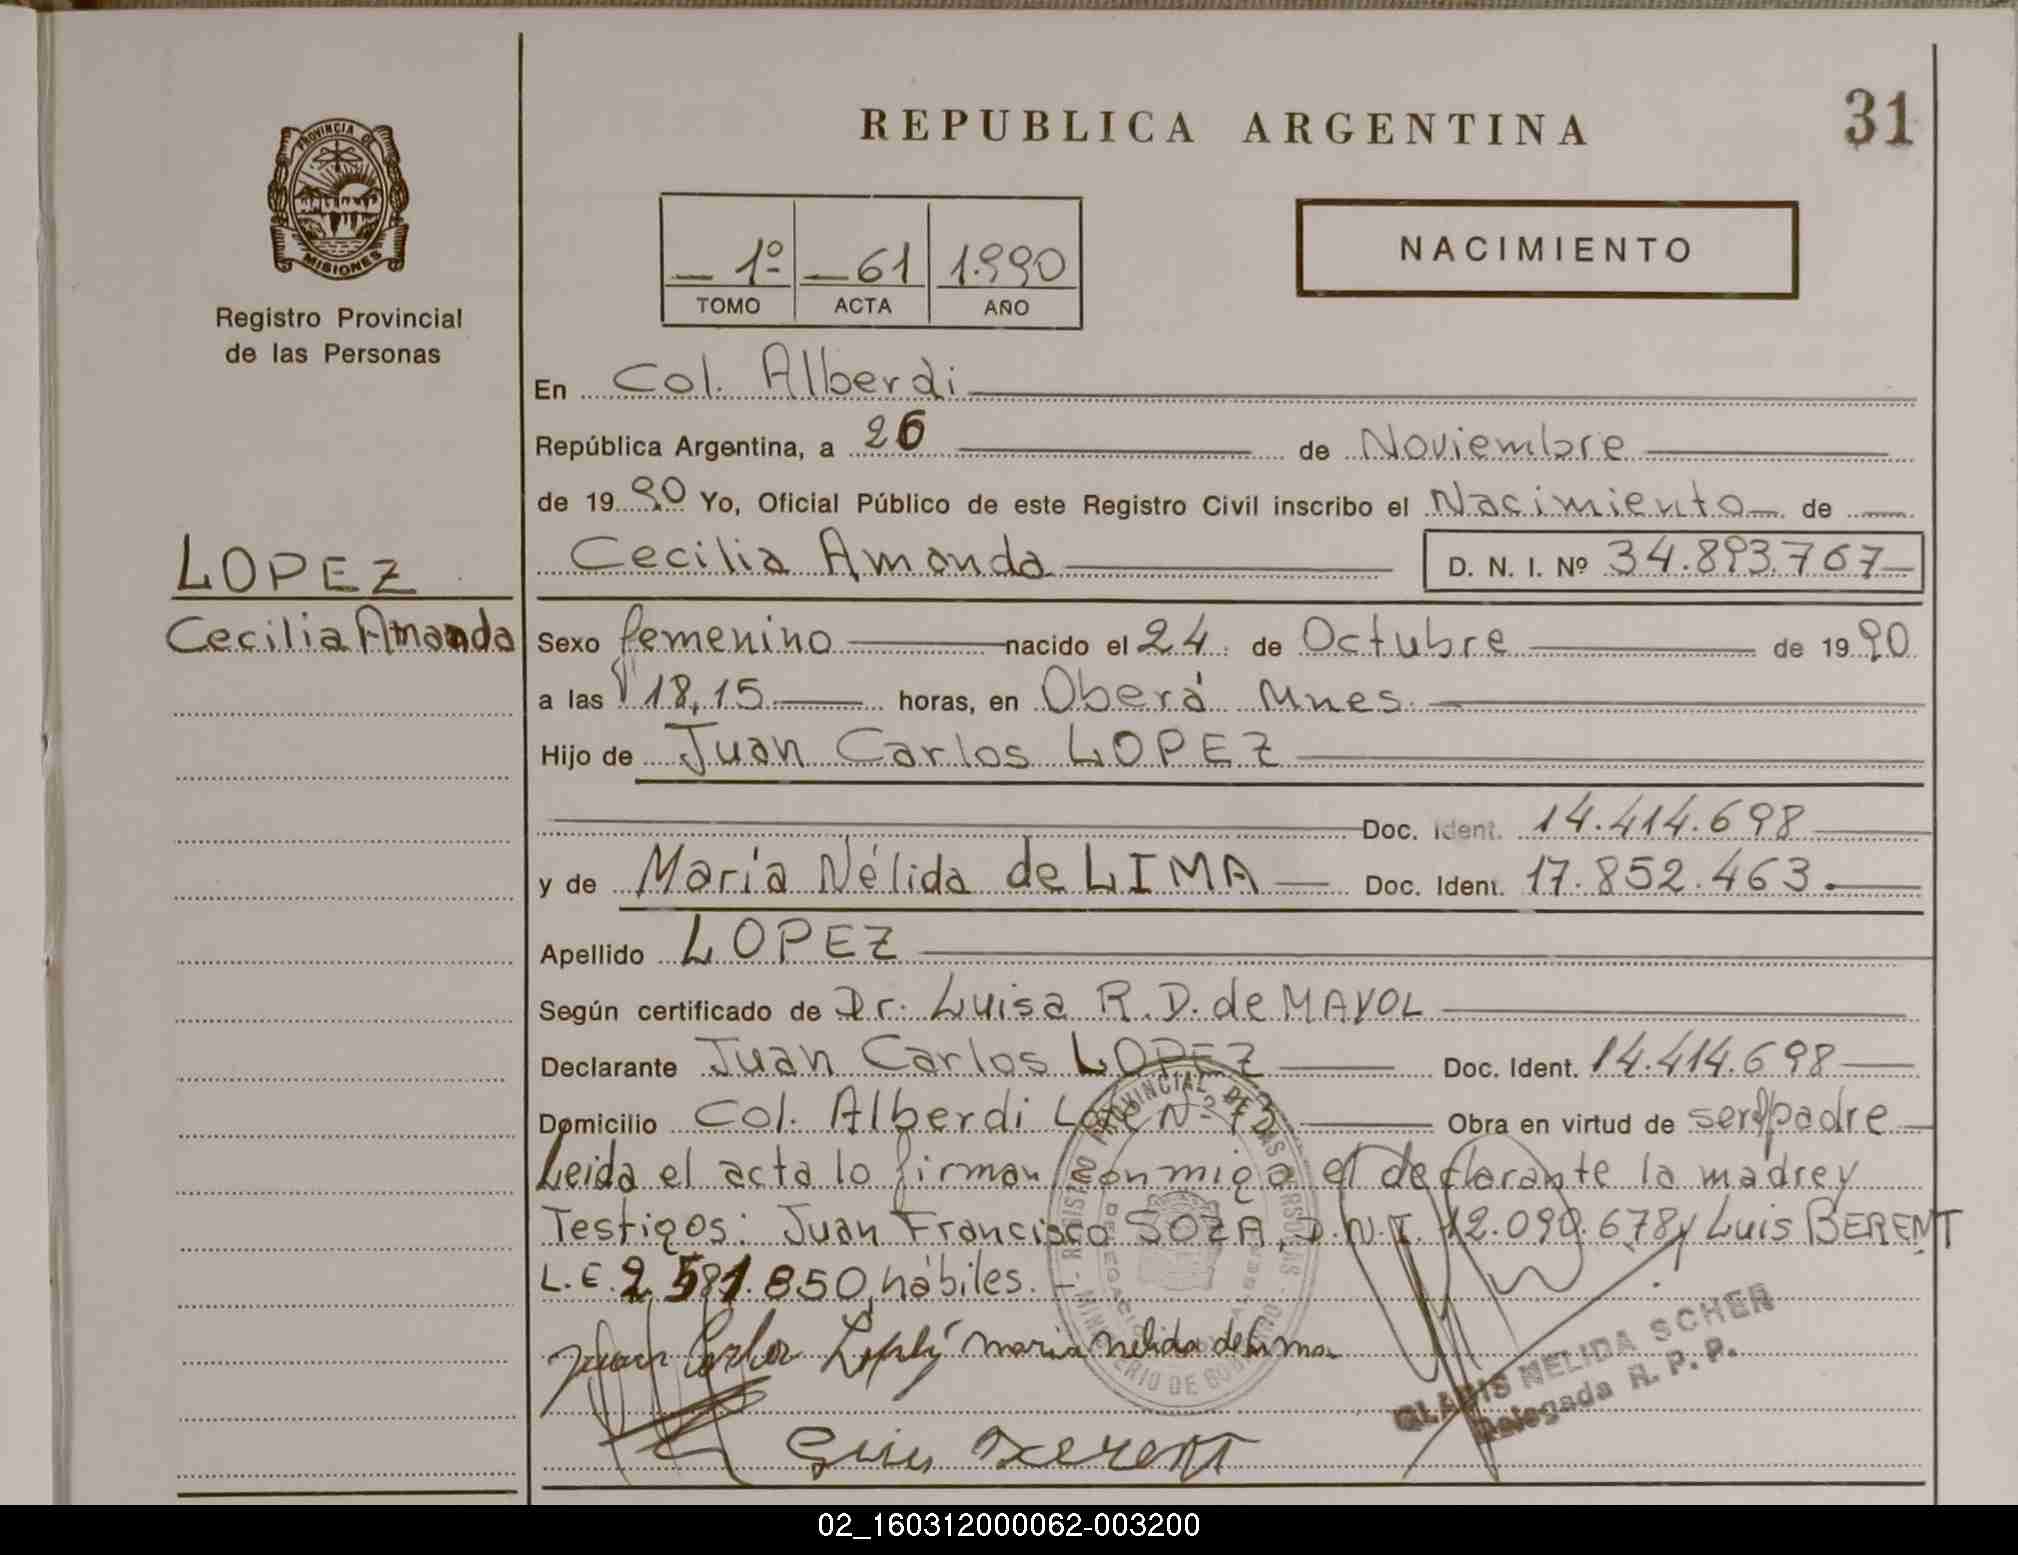 REPUBLICA ARGENTINA
31
PROVINCIA DE
MISIONES
Registro Provincial
de las Personas
1º 61 1.990
TOMO ACTA AÑO
NACIMIENTO
En Col. Alberdi
República Argentina, a 26 de Noviembre
de 1990 Yo, Oficial Público de este Registro Civil inscribo el Nacimiento de
LOPEZ
Cecilia Amanda
Cecilia Amanda D. N. I. Nº 34.893.767
Sexo femenino nacido el 24 de Octubre de 1990
a las 18,15 horas, en Oberá Mnes.
Hijo de Juan Carlos LOPEZ
Doc. Ident. 14.414.698
y de María Nélida de LIMA Doc. Ident. 17.852.463.
Apellido LOPEZ
Según certificado de Dr. Luisa R.D. de MAYOL
Declarante Juan Carlos LOPEZ Doc. Ident. 14.414.698
Domicilio Col. Alberdi Lote Nº Obra en virtud de ser padre
Leida el acta lo firman conmigo el declarante la madre y
Testigos: Juan Francisco SOZA, D.N.I. 12.090.678 y Luis BERENT
L.E. 2.581.850, hábiles.
Juan Carlos maria nelida de lima
Luis Berent
REGISTRO PROVINCIAL DE LAS PERSONAS
MINISTERIO DE GOBIERNO
GLADIS NELIDA SCHER
Delegada R. P. P.
02_160312000062-003200